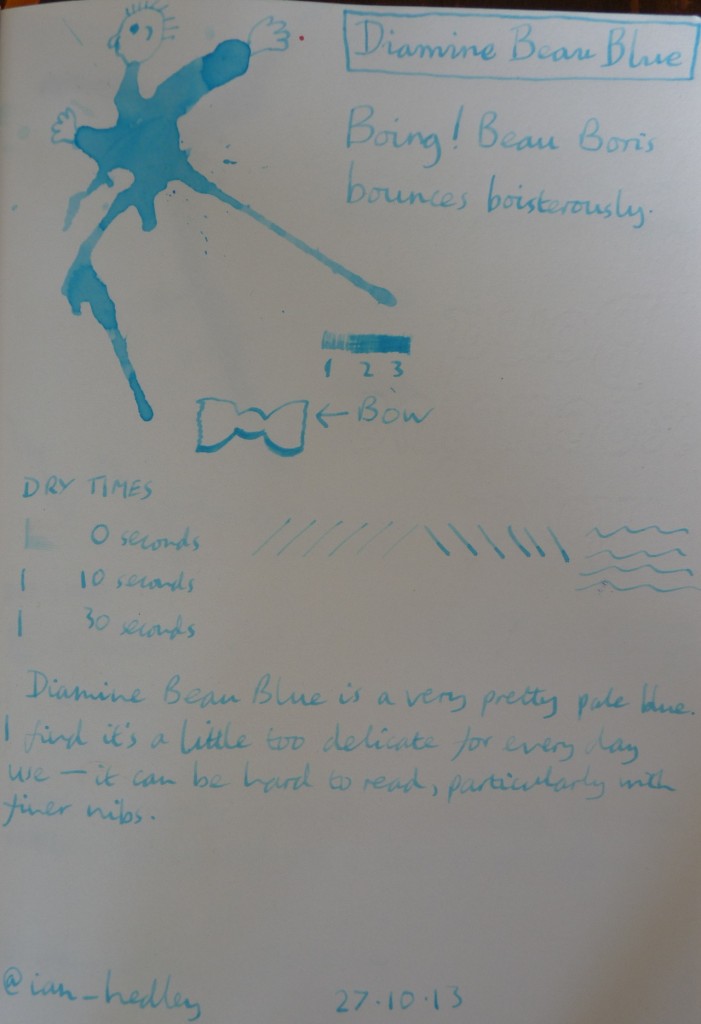 Diamine Beau Blue
Boing! Beau Boris
bounces boisterously.
1 2 3
← Bow
DRY TIMES
0 seconds
10 seconds
30 seconds
Diamine Beau Blue is a very pretty pale blue.
I find it's a little too delicate for every day
use – it can be hard to read, particularly with
finer nibs.
@ian_hedley 27.10.13